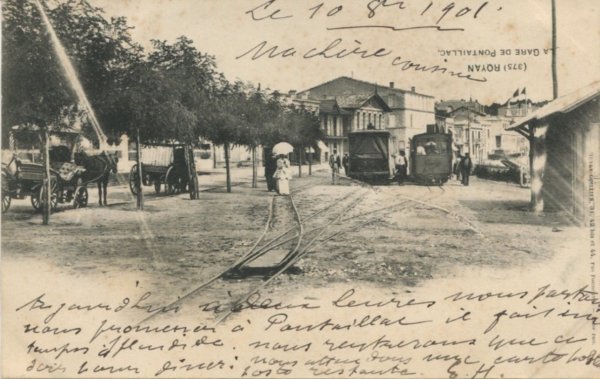 Le 10 8bre 1901.
Ma chère cousine
(375) ROYAN
LA GARE DE PONTAILLAC.
Aujourd'hui à deux heures nous partons
nous promener à Pontaillac il fait un
temps splendide. nous rentrerons que ce
soir pour diner. nous attendons une carte
poste restante.